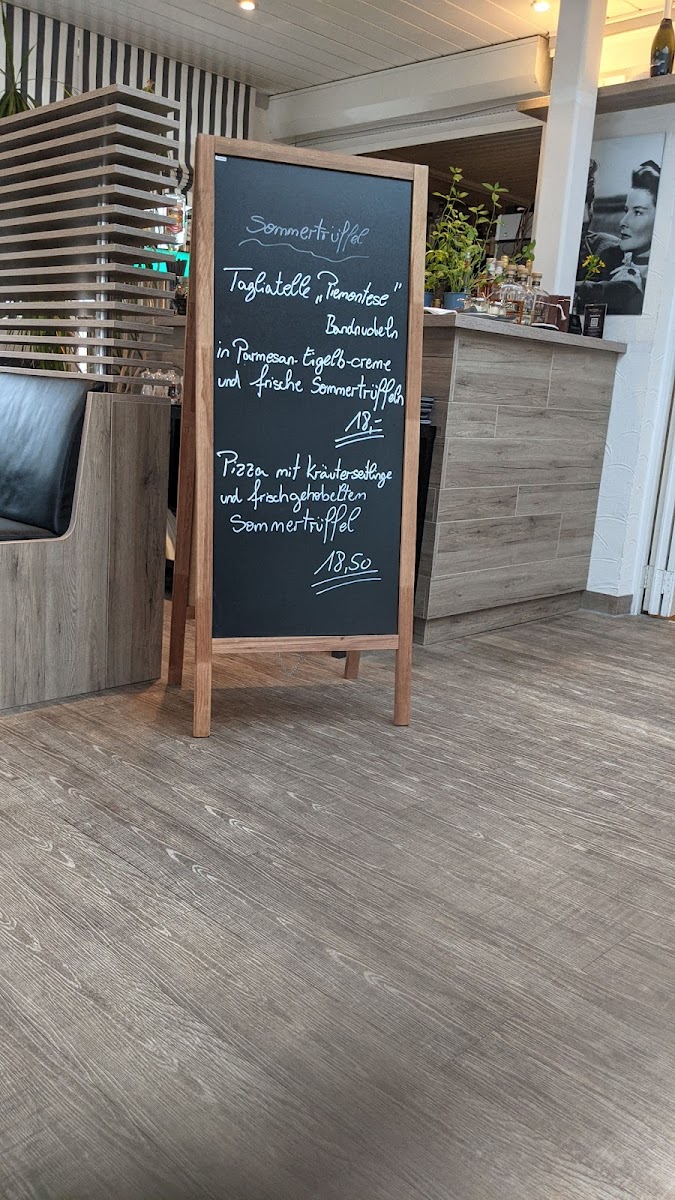 Sommertrüffel
Tagliatelle „Piemontese"
Bandnudeln
in Parmesan-Eigelb-creme
und frische Sommertrüffeln
18,-
Pizza mit Kräuterseitlinge
und frischgehobelten
Sommertrüffel
18,50